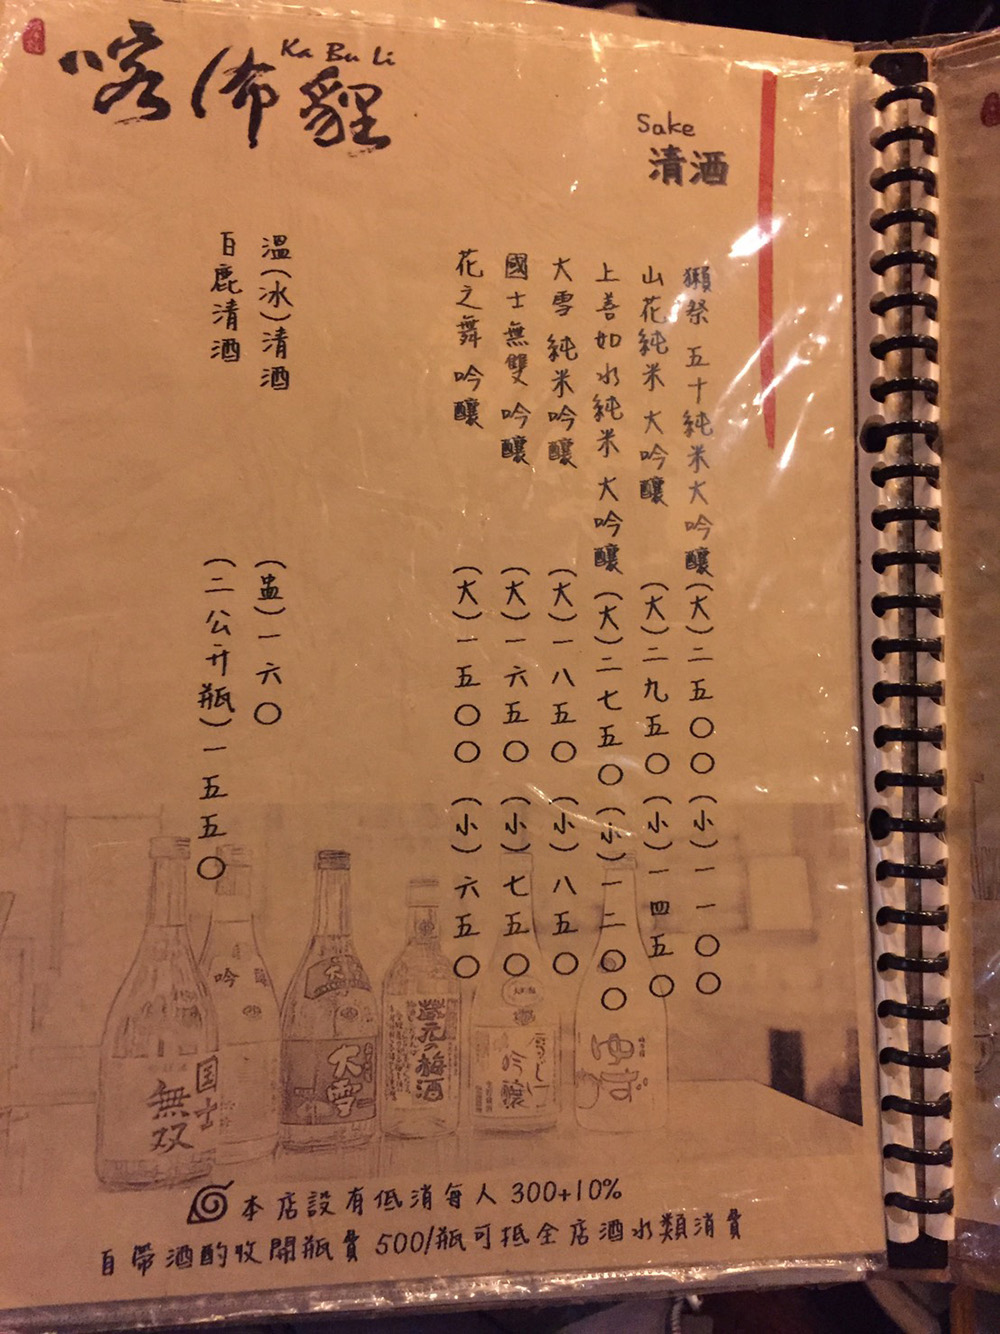 喀佈貍
Ka Bu Li
Sake
清酒
獺祭 五十純米大吟釀(大)二五〇〇(小)一一〇〇
山花純米 大吟釀 (大)二九五〇(小)一四五〇
上善如水純米 大吟釀(大)二七五〇(小)一二〇〇
大雪 純米吟釀 (大)一八五〇(小)八五〇
國士無雙 吟釀 (大)一六五〇(小)七五〇
花之舞 吟釀 (大)一五〇〇(小)六五〇
溫(冰)清酒 (盅)一六〇
百鹿清酒 (二公升瓶)一五五〇
国士
無双
吟釀
大雪
蒙元の梅酒
吟釀
ゆず
本店設有低消每人 300+10%
自帶酒酌收開瓶費 500/瓶可抵全店酒水類消費